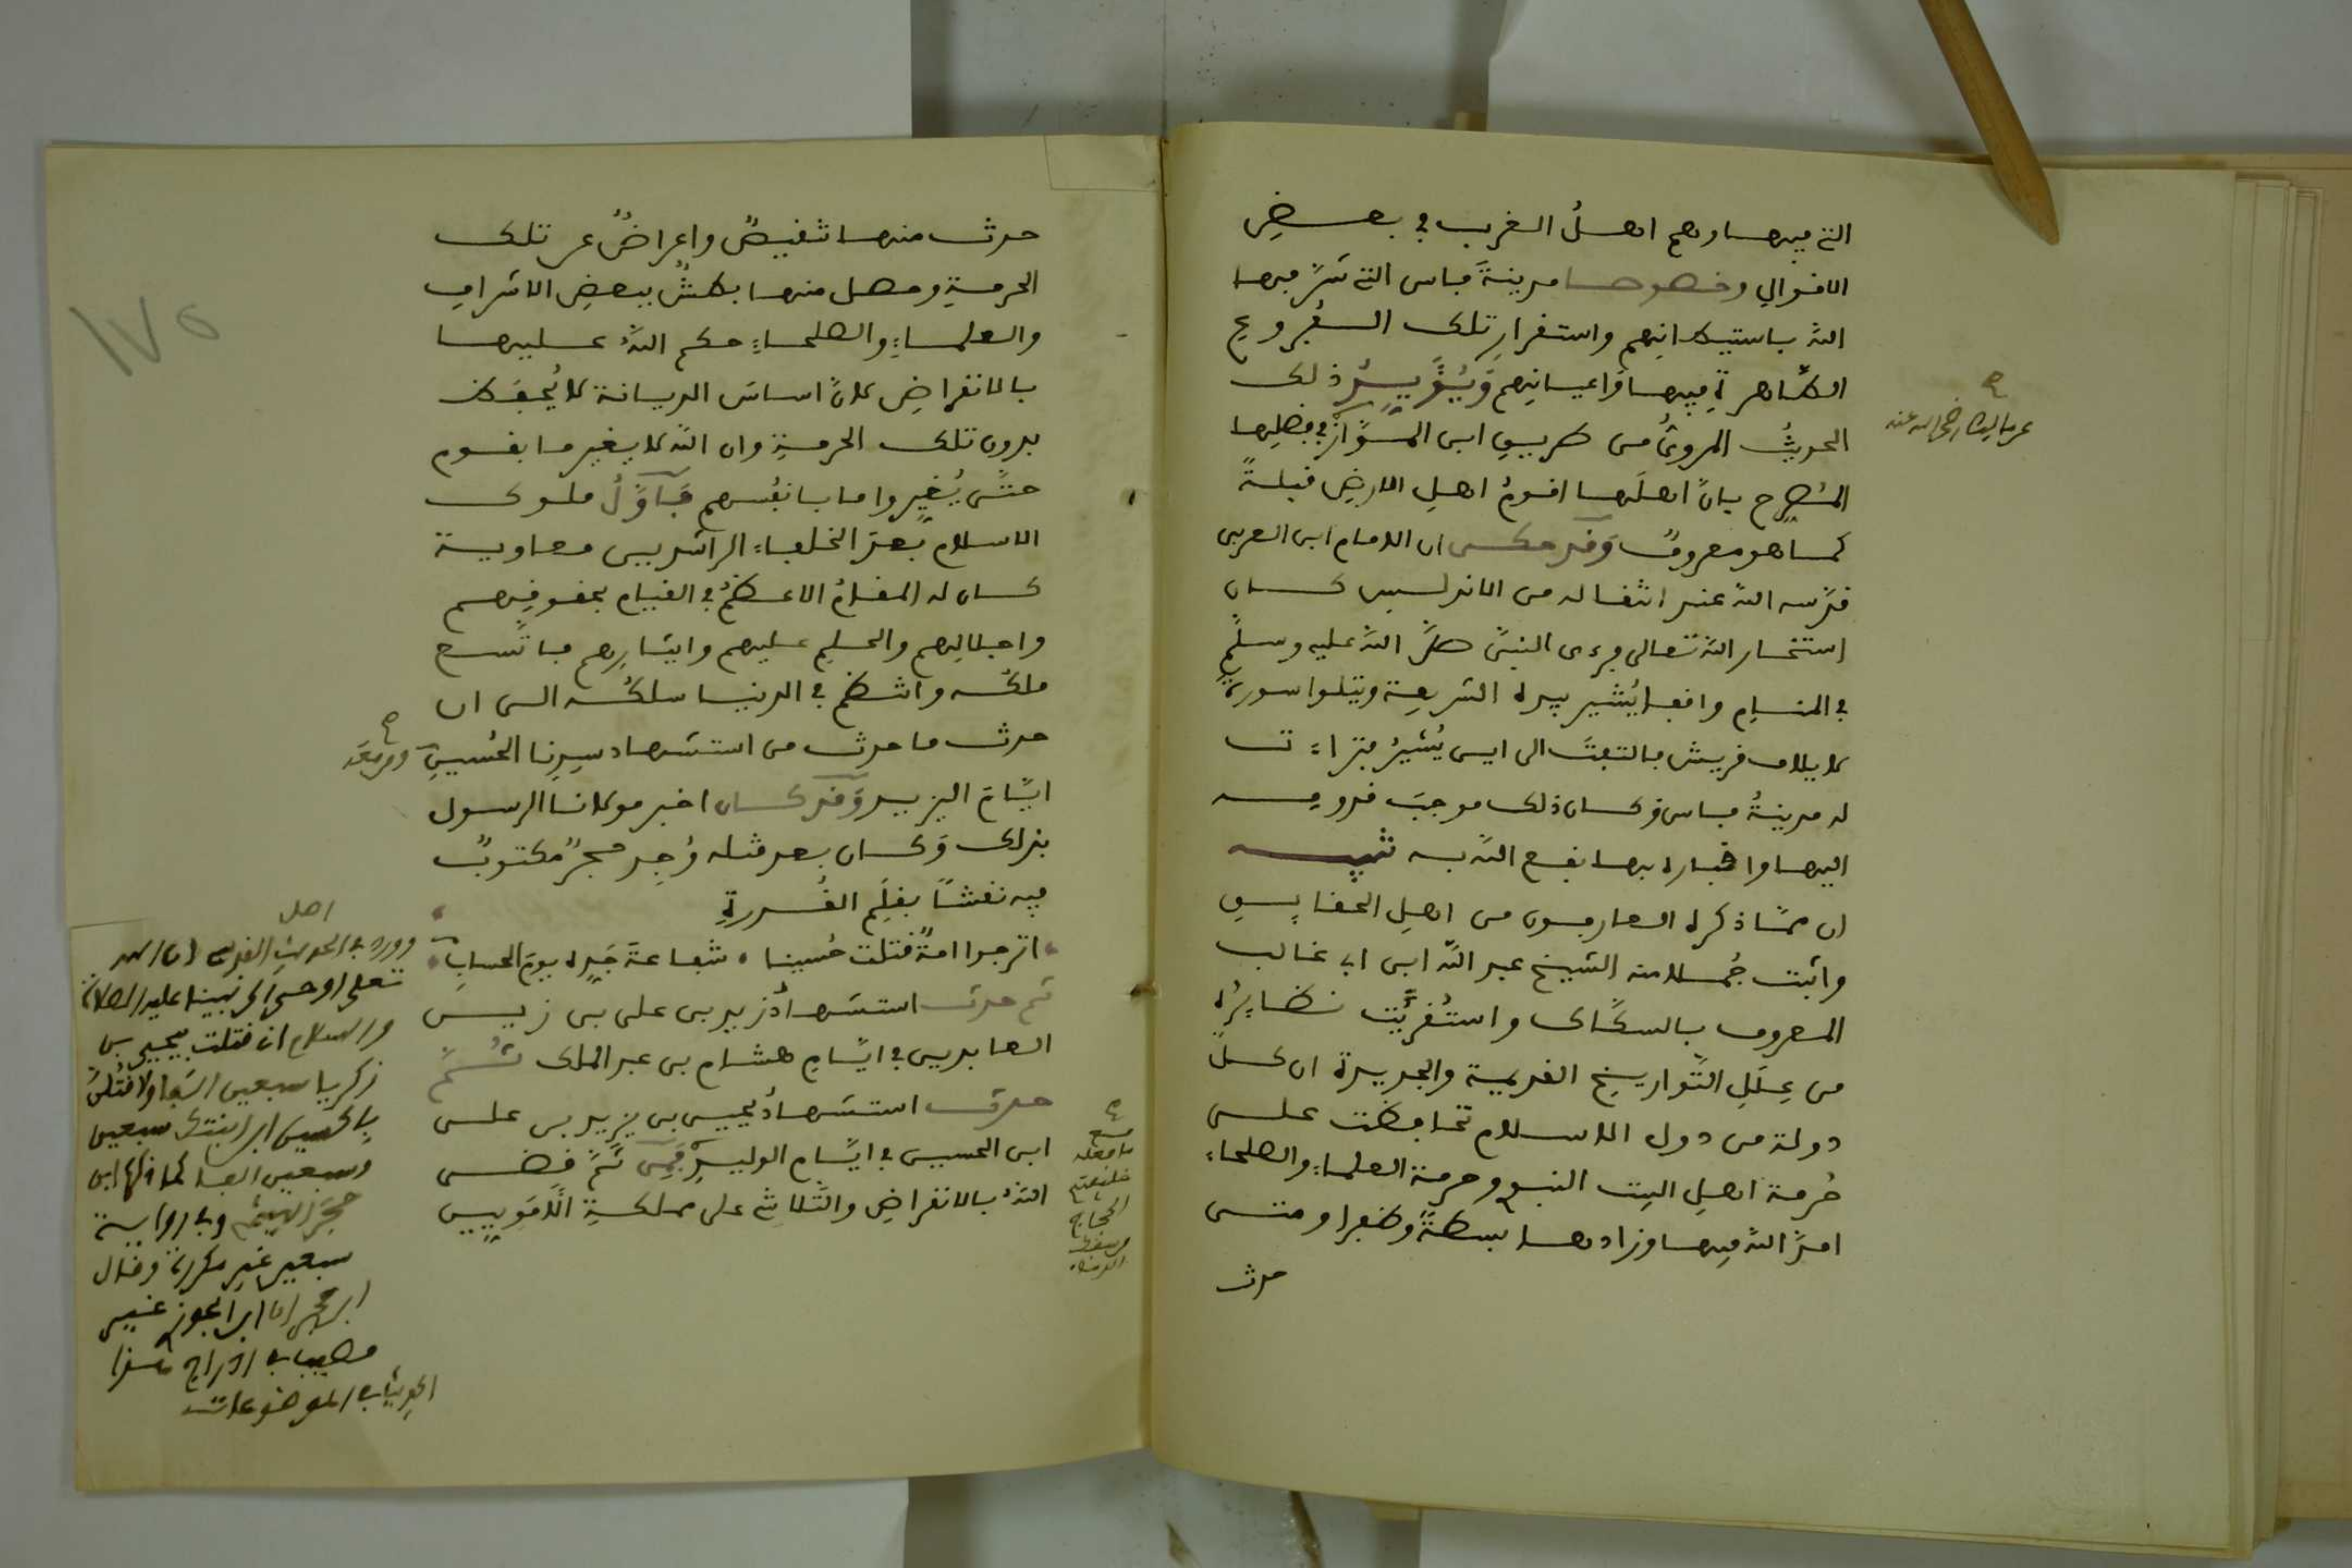 التي فيها وهم اهلُ الغرب في بعضِ
الاقوالِ وخصوصا مدينةَ فاس التي سَرَّ فيها
اللهُ باستيطانهم واستقرارِ تلك الفروع
الطاهرةِ فيها واعيانِهم وَيُؤَيِّدُ ذلك
الحديثُ المرويُّ من طريقِ ابن الموَّاز في فضلِها
عن مالك رضي الله عنه
المُصرِّح بانَّ اهلَها اقومُ اهلِ الارضِ قبلةً
كما هو معروفٌ وَقد حكى ان الامام ابن العربي
قدَّسه اللهُ عند انتقاله من الاندلسِ كان
استخار اللهَ تعالى فرءى النبيَّ صلَّى اللهُ عليه وسلَّم
في المنامِ واقفا يُشير بيده الشريفة ويتلوا سورةَ
لايلاف قريش فالتفتَ الى اين يُشيرُ فتراءت
له مدينةُ فاس فكان ذلك موجبَ قدومِه
اليها واقباره بها نفع اللهُ به تنبيه
ان ممَّا ذكره العارفون من اهلِ الحقايِق
واثبت جُملا منه الشيخ عبد اللهِ ابن ابي غالب
المعروف بالسكَّاك واستُقرِيَت نظايِرُه
من عِلَلِ التَّواريخِ القديمة والجديدة ان كلَّ
دولة من دول الاسلام تحافظت على
حُرمة اهلِ البيت النبوي وحرمة العلماءِ والصلحاءِ
امدَّ اللهُ فيها وزادها بسطةً وظفرا ومتى
حدث
حدث منها تنقيصٌ واعراضٌ عن تلك
الحرمةِ وحصل منها بطشٌ ببعضِ الاشرافِ
والعلماءِ والصلحاءِ حكم اللهُ عليها
بالانقراضِ لانَّ اساسَ الديانة لا يُحفَظ
بدون تلك الحرمةِ وان اللهَ لا يغير ما بقوم
حتَّى يُغيِّروا ما بانفُسهم فَأوَّلُ ملوك
الاسلام بعدَ الخلفاء الراشدين معاوية
كان له المقامُ الاعظمُ في القيامِ بحقوقِهم
واجلالِهم والحلمِ عليهم وايثارِهم فاتَّسع
ملكُه وانتظم في الدنيا سلكُه الى ان
حدث ما حدث من استشهاد سيِدِنا الحُسينِ
ايَّامَ اليزيد وَقد كان اخبر مولانا الرسول
بذلك وَكان بعد قتله وُجِد حجرٌ مكتوبٌ
فيه نقشاً بقلَمِ القُدرةِ
اترجوا امةٌ قتلت حُسينا • شفاعةَ جَدِه يومَ الحسابِ
ثم حدث استشهادُ زيد بن علي بن زين
العابدين في ايَّامِ هشام بن عبد الملك ثُمَّ
حدث استشهادُ يحيى بن يزيد بن على
ابن الحسين في ايَّامِ الوليدِ فَمِن ثَمَّ قضى
اللهُ بالانقراضِ والتَّلاشِي على مملكةِ الأُمَوِيِين
مع
ما فعله
خليفتهم
الحجاج
من سفك
الدماء
اصل
وورد في الحديثِ القدسي ان الله
تعلى اوحى الى نبينا عليه الصلاة
والسلام ان قتلت بيحيى بن
زكريا سبعين الفا ولاقتُلنَّ
بالحسين ابن ابنتك سبعين
وسبعين الفا كما ذكرها ابن
حجر الهيثمي وفي رواية
سبعين غير مكررة وقال
ابن حجر ان ابن الجوزي غير
مصيب في ادراج هذا
الحديث في الموضوعات